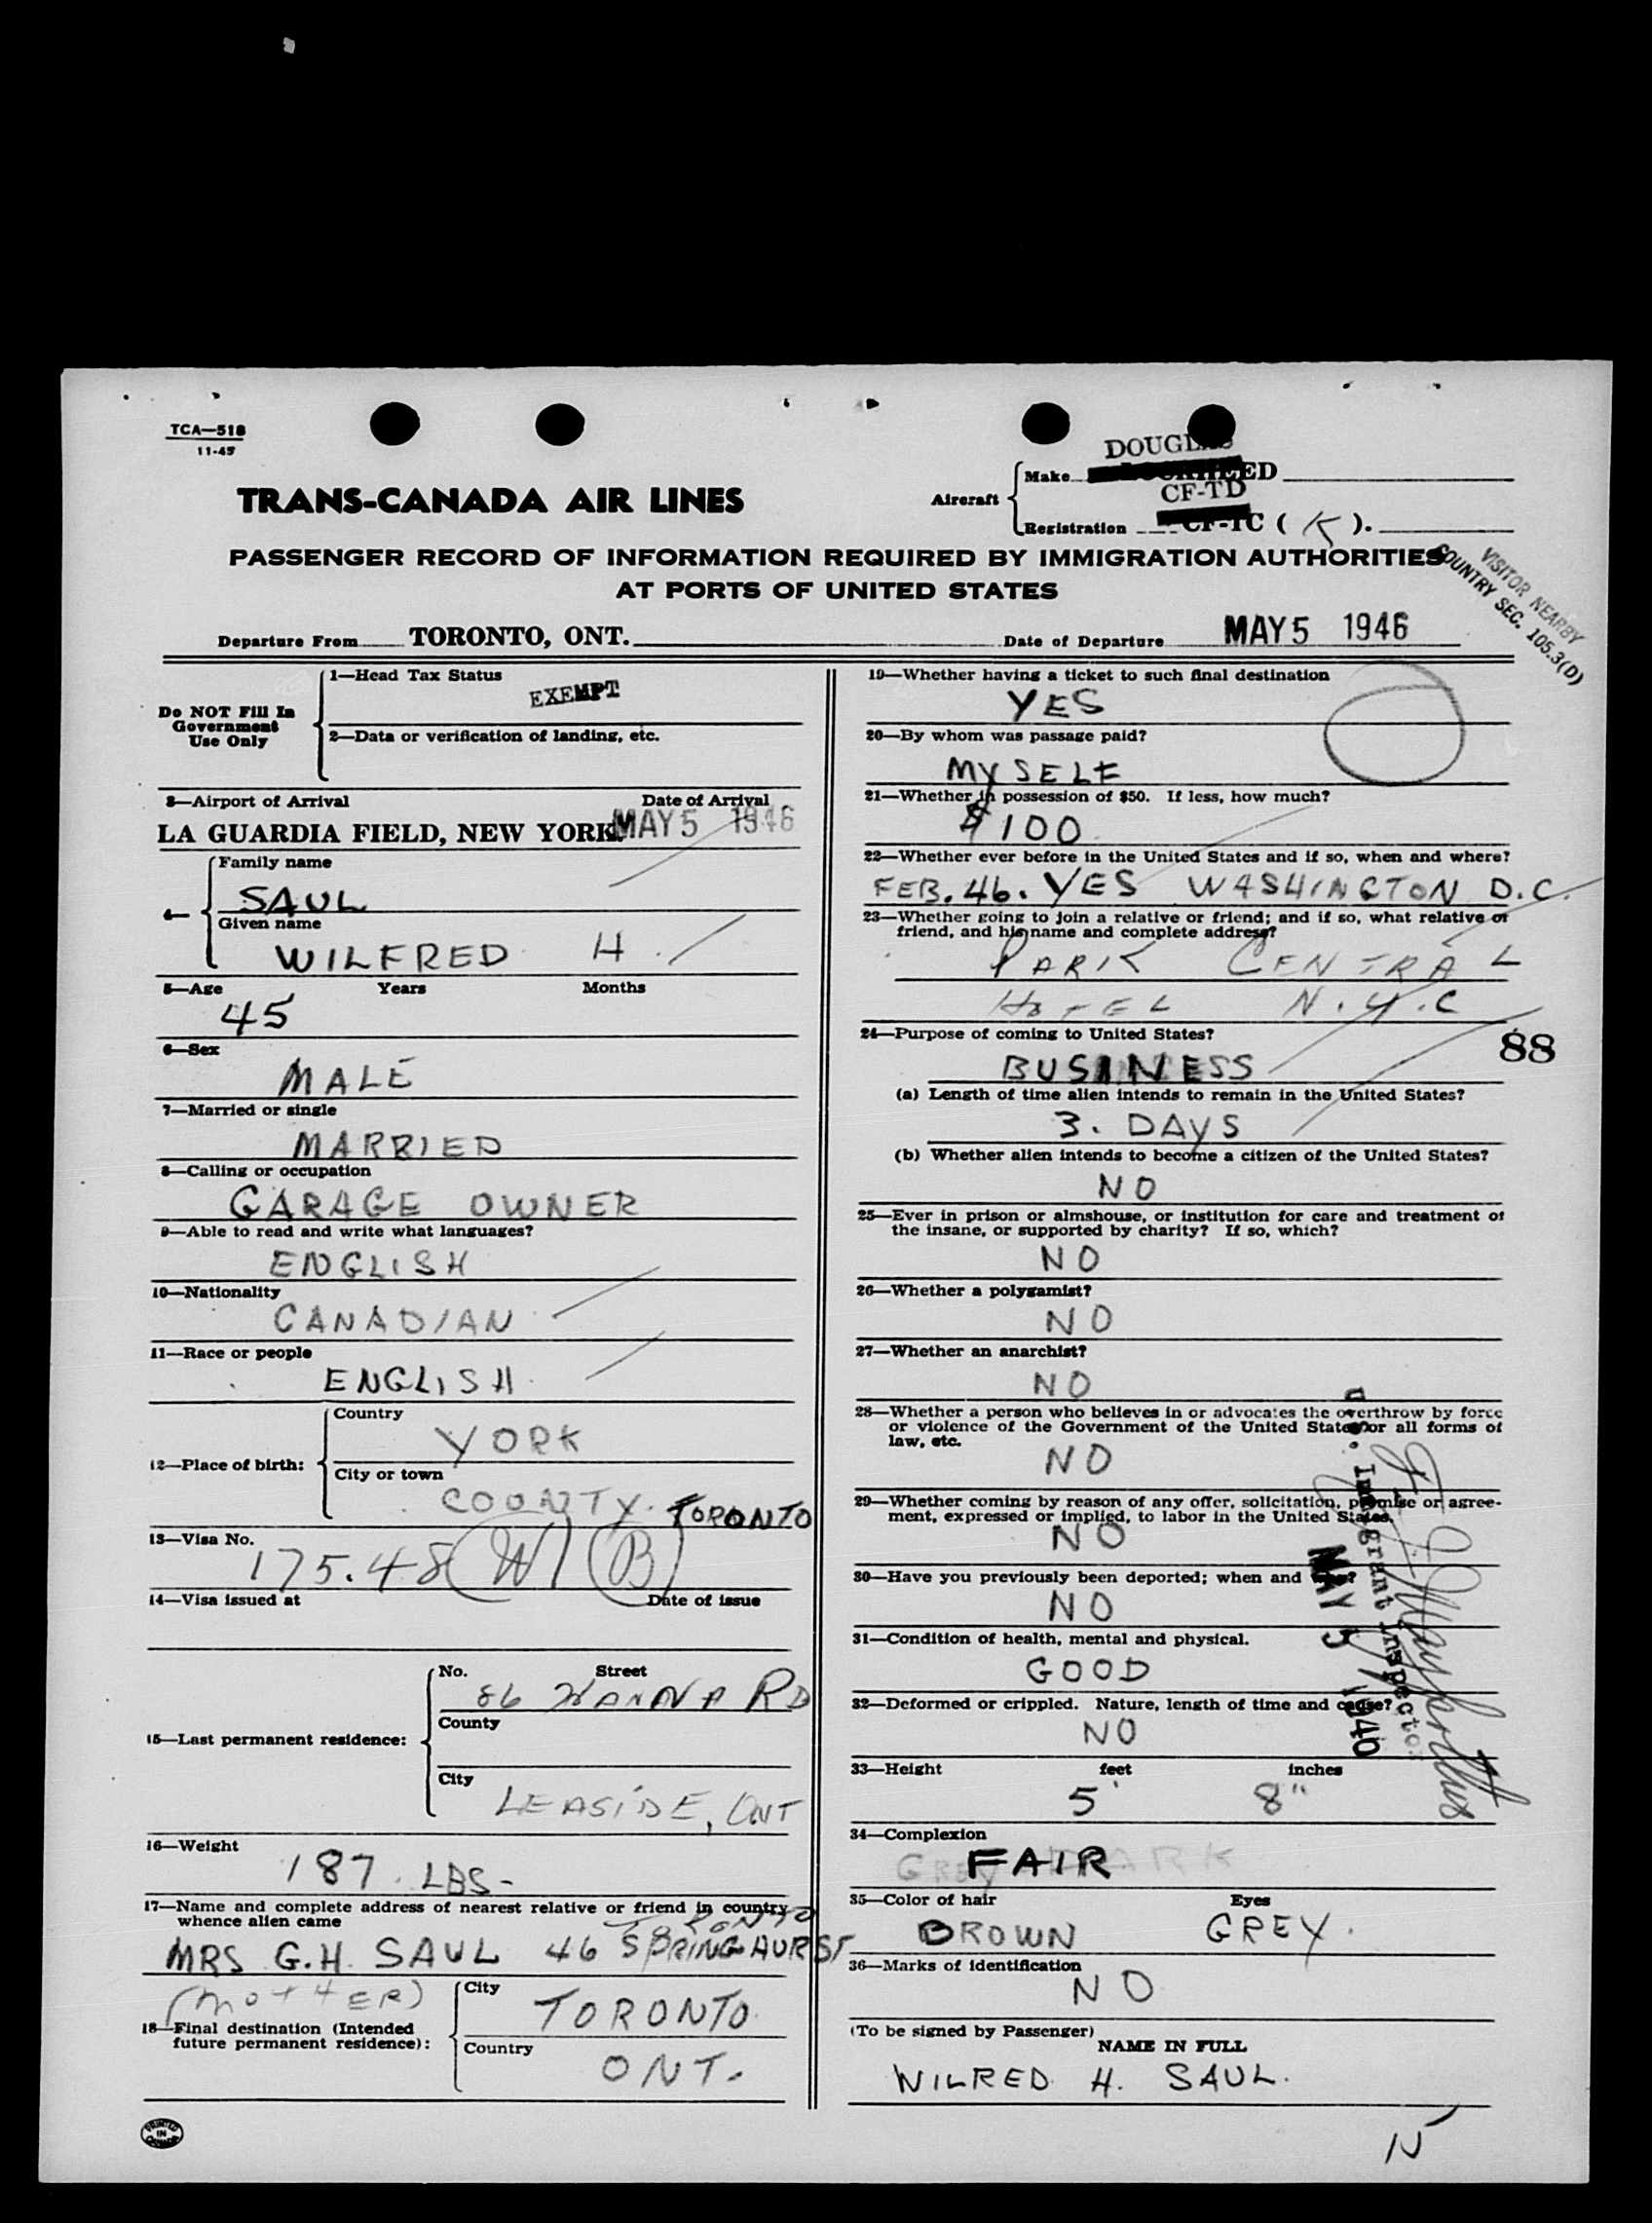 TCA—518
11-45
DOUGLAS
Aircraft
Make
CF-TD
Registration CF-TC ( K ).
TRANS-CANADA AIR LINES
PASSENGER RECORD OF INFORMATION REQUIRED BY IMMIGRATION AUTHORITIES
AT PORTS OF UNITED STATES
VISITOR NEARBY
COUNTRY SEC. 105.3(D)
Departure From TORONTO, ONT. Date of Departure MAY 5 1946
Do NOT Fill In
Government
Use Only
1—Head Tax Status
EXEMPT
2—Data or verification of landing, etc.
3—Airport of Arrival Date of Arrival
LA GUARDIA FIELD, NEW YORK MAY 5 1946
4—
Family name
SAUL
Given name
WILFRED H.
5—Age Years Months
45
6—Sex
MALE
7—Married or single
MARRIED
8—Calling or occupation
GARAGE OWNER
9—Able to read and write what languages?
ENGLISH
10—Nationality
CANADIAN
11—Race or people
ENGLISH
12—Place of birth:
Country
YORK
City or town
COUNTY. TORONTO
13—Visa No.
175.48 (W) (B)
14—Visa issued at Date of issue
15—Last permanent residence:
No. Street
86 HANNA RD
County
City
LEASIDE, ONT
16—Weight
187 LBS-
17—Name and complete address of nearest relative or friend in country
whence alien came
TORONTO
MRS G.H. SAUL 46 SPRINGHURST
(MOTHER)
18—Final destination (Intended
future permanent residence):
City
TORONTO
Country
ONT.
PRINTED
IN
CANADA
19—Whether having a ticket to such final destination
YES
20—By whom was passage paid?
MYSELF
21—Whether in possession of $50. If less, how much?
$100
22—Whether ever before in the United States and if so, when and where?
FEB. 46. YES WASHINGTON D.C.
23—Whether going to join a relative or friend; and if so, what relative or
friend, and his name and complete address?
PARK CENTRAL
HOTEL N.Y.C
88
24—Purpose of coming to United States?
BUSINESS
(a) Length of time alien intends to remain in the United States?
3. DAYS
(b) Whether alien intends to become a citizen of the United States?
NO
25—Ever in prison or almshouse, or institution for care and treatment of
the insane, or supported by charity? If so, which?
NO
26—Whether a polygamist?
NO
27—Whether an anarchist?
NO
28—Whether a person who believes in or advocates the overthrow by force
or violence of the Government of the United States or all forms of
law, etc.
NO
29—Whether coming by reason of any offer, solicitation, promise or agree-
ment, expressed or implied, to labor in the United States.
NO
30—Have you previously been deported; when and
NO
31—Condition of health, mental and physical.
GOOD
32—Deformed or crippled. Nature, length of time and cause?
NO
U.S. Immigrant Inspector
MAY 5 1946
33—Height feet inches
5' 8"
34—Complexion
FAIR
35—Color of hair Eyes
BROWN GREY.
36—Marks of identification
NO
(To be signed by Passenger)
NAME IN FULL
WILRED H. SAUL.